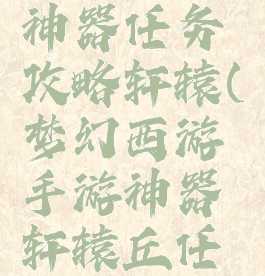 神器任务
攻略轩辕(
梦幻西游
手游神器
轩辕丘任